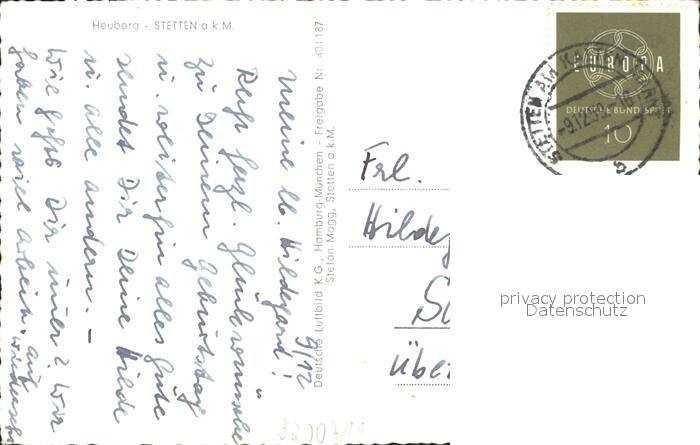 Heuberg - STETTEN a.k.M.
9/12
Meine lb. Hildegard!
Recht herzl. Glückwünsche
zu Deinem Geburtstag
u. weiterhin alles Gute
sendet Dir Deine Hilde
u. alle andern. -
Wie gehts Dir immer? Wir
haben viel Arbeit. auf
Deutsche Luftbild K.G., Hamburg-München - Freigabe Nr. 401187
Stefan Mogg, Stetten a.k.M.
EUROPA
DEUTSCHE BUNDESPOST
10
STETTEN AM KALTEN MARKT
-9.12.59
b
Frl.
Hildeg
Über
privacy protection
Datenschutz